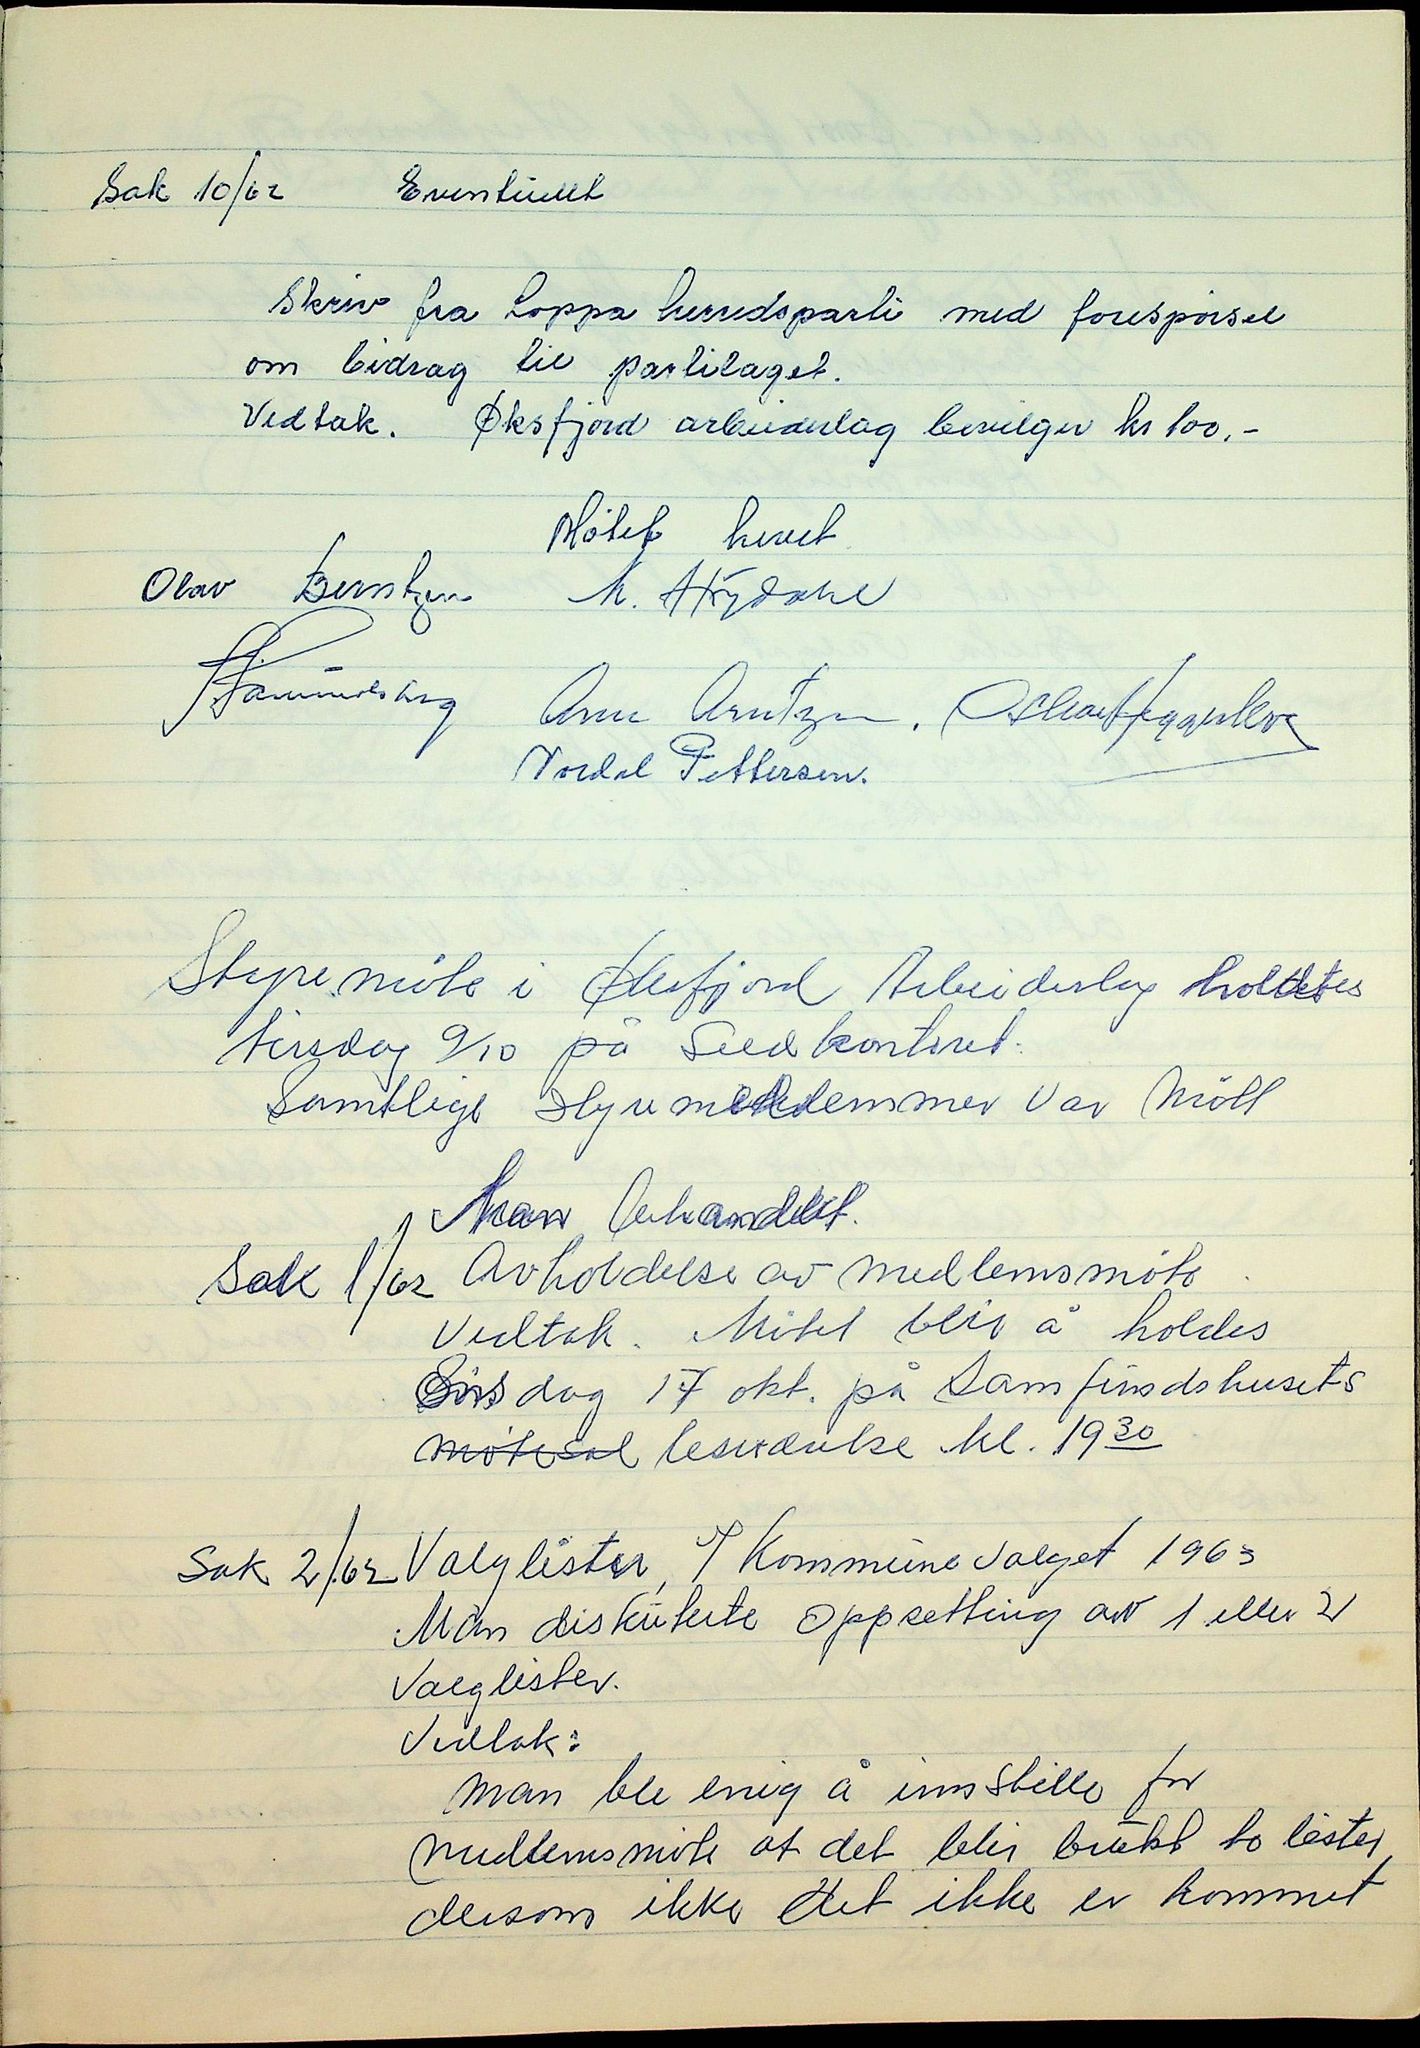 Sak 10/62 Eventuelt
Skriv fra Loppa herredsparti med forespörsel
om bidrag til partilaget.
Vedtak. Øksfjord arbeiderlag bevilger kr 100.-
Mötet hevet
Olav Berntzen M. Höydahl
Arne Arntzen.
Nordal Pettersen.
Styremöte i Øksfjord Arbeiderlag holdtes
tirsdag 9/10 på Sildkontoret.
Samtlige styremedlemmer var Mött
Man behandlet.
Sak 1/62 Avholdelse av medlemsmöte.
Vedtak. Mötet blir å holdes
Onsdag 17 okt. på Samfundshusets
mötesal leseværelse kl. 19 30
Sak 2/62 Valglister, I Kommunevalget 1963
Man diskuterte oppsetting av 1 eller 2
Valglister.
Vedtak:
Man ble enig å innstille for
medlemsmöte at det blir brukt to lister
dersom ikke det ikke er kommet